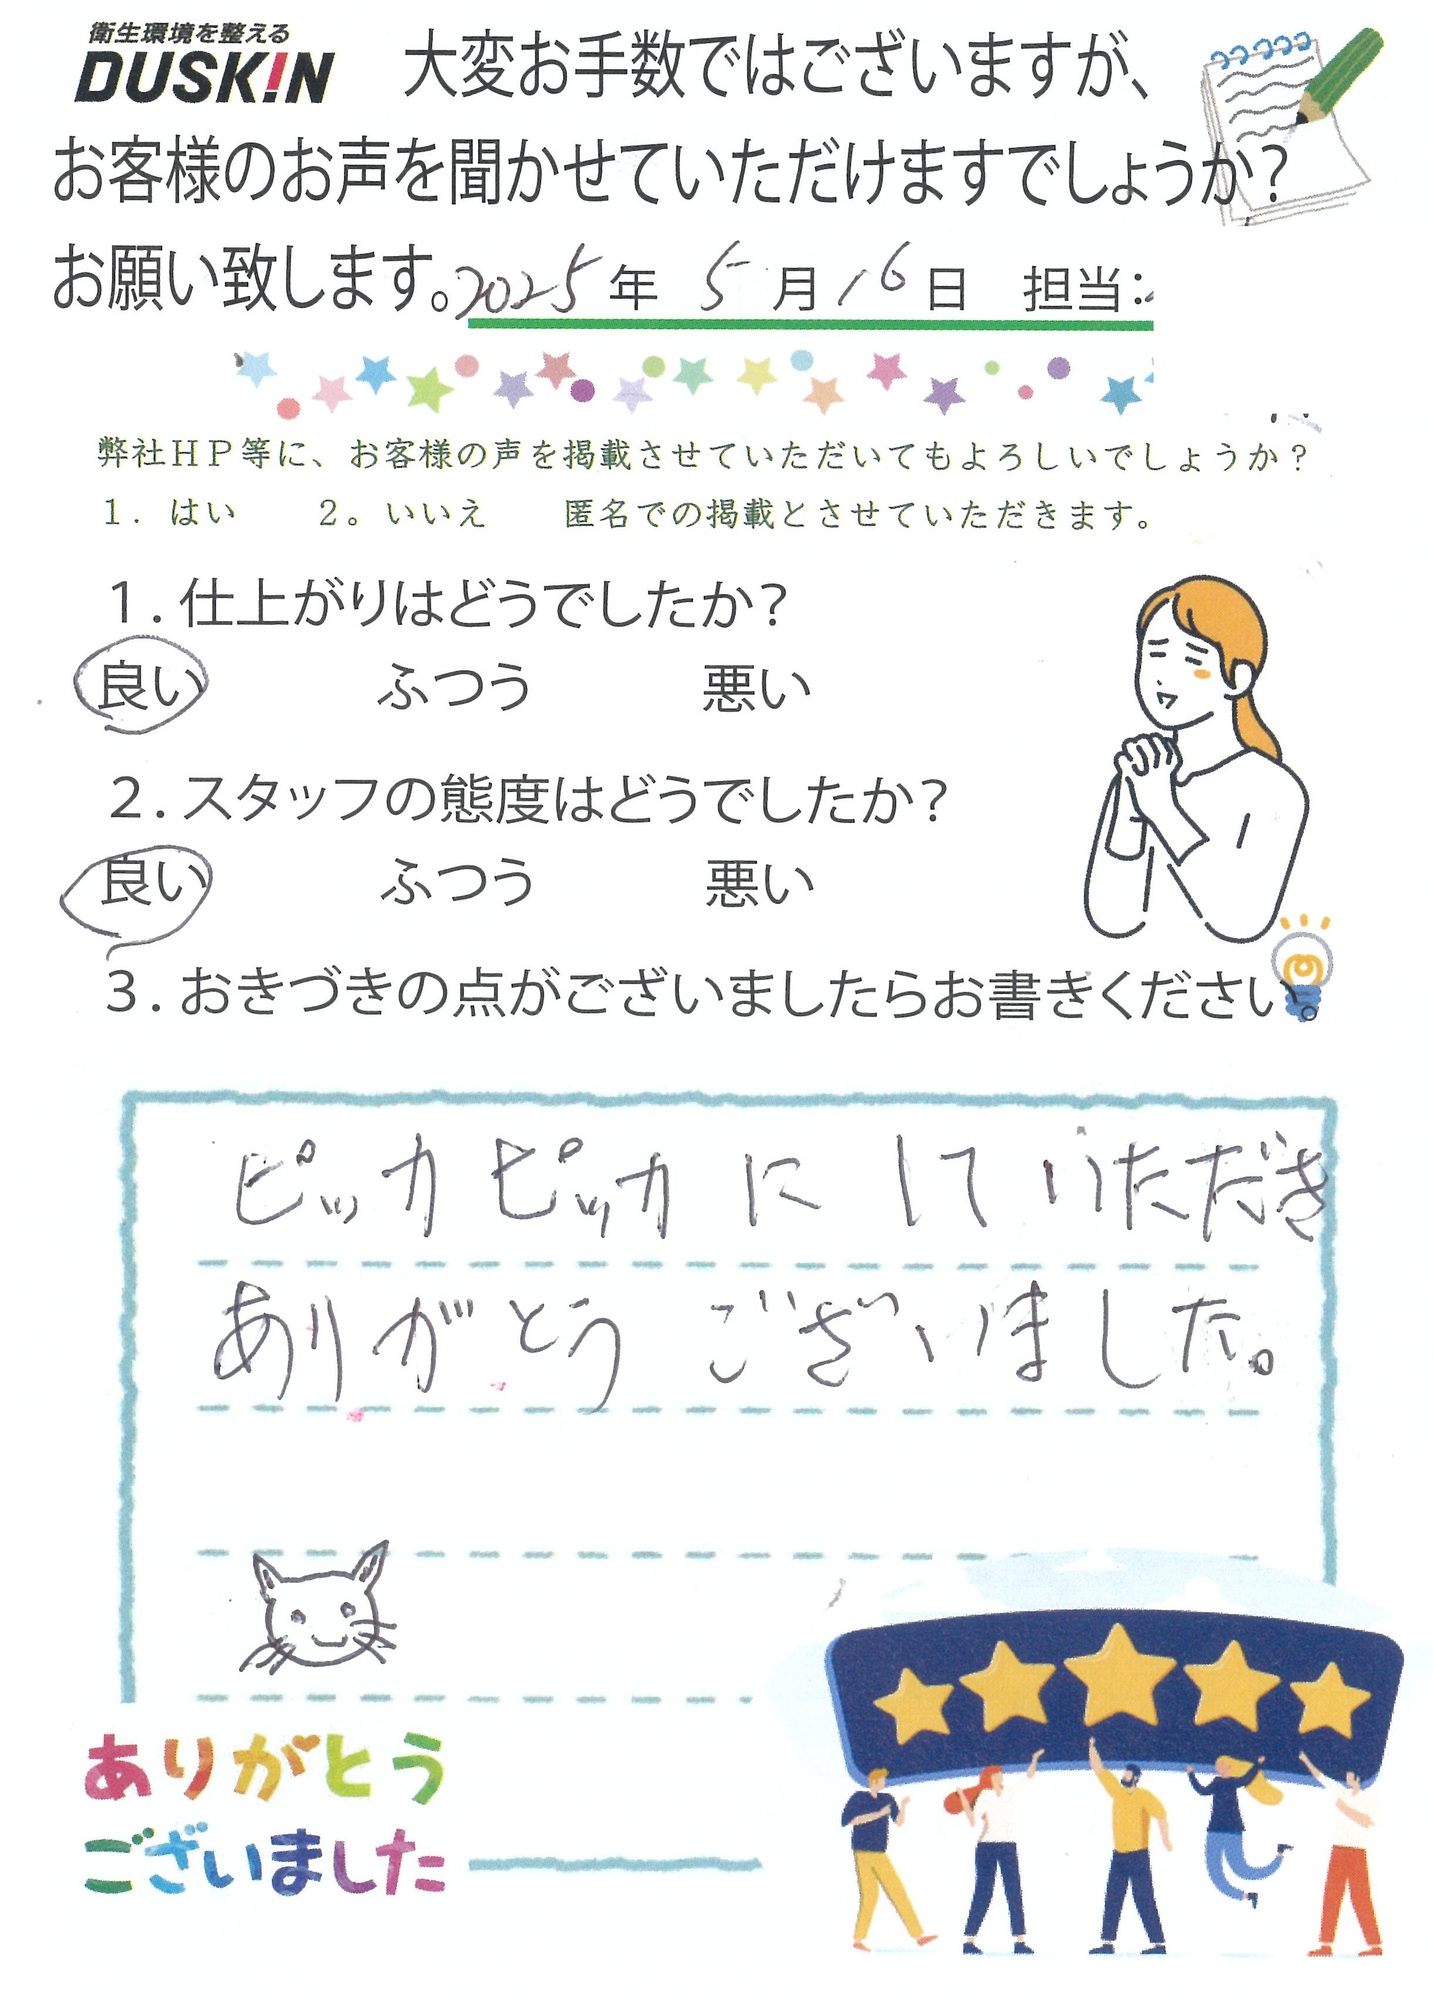 衛生環境を整える
DUSKIN
大変お手数ではございますが、
お客様のお声を聞かせていただけますでしょうか?
お願い致します。2025年 5月16日 担当:
弊社HP等に、お客様の声を掲載させていただいてもよろしいでしょうか?
1. はい 2。いいえ 匿名での掲載とさせていただきます。
1.仕上がりはどうでしたか?
良い ふつう 悪い
2.スタッフの態度はどうでしたか?
良い ふつう 悪い
3.おきづきの点がございましたらお書きください。
ピッカピッカにしていただき
ありがとうございました。
ありがとう
ございました